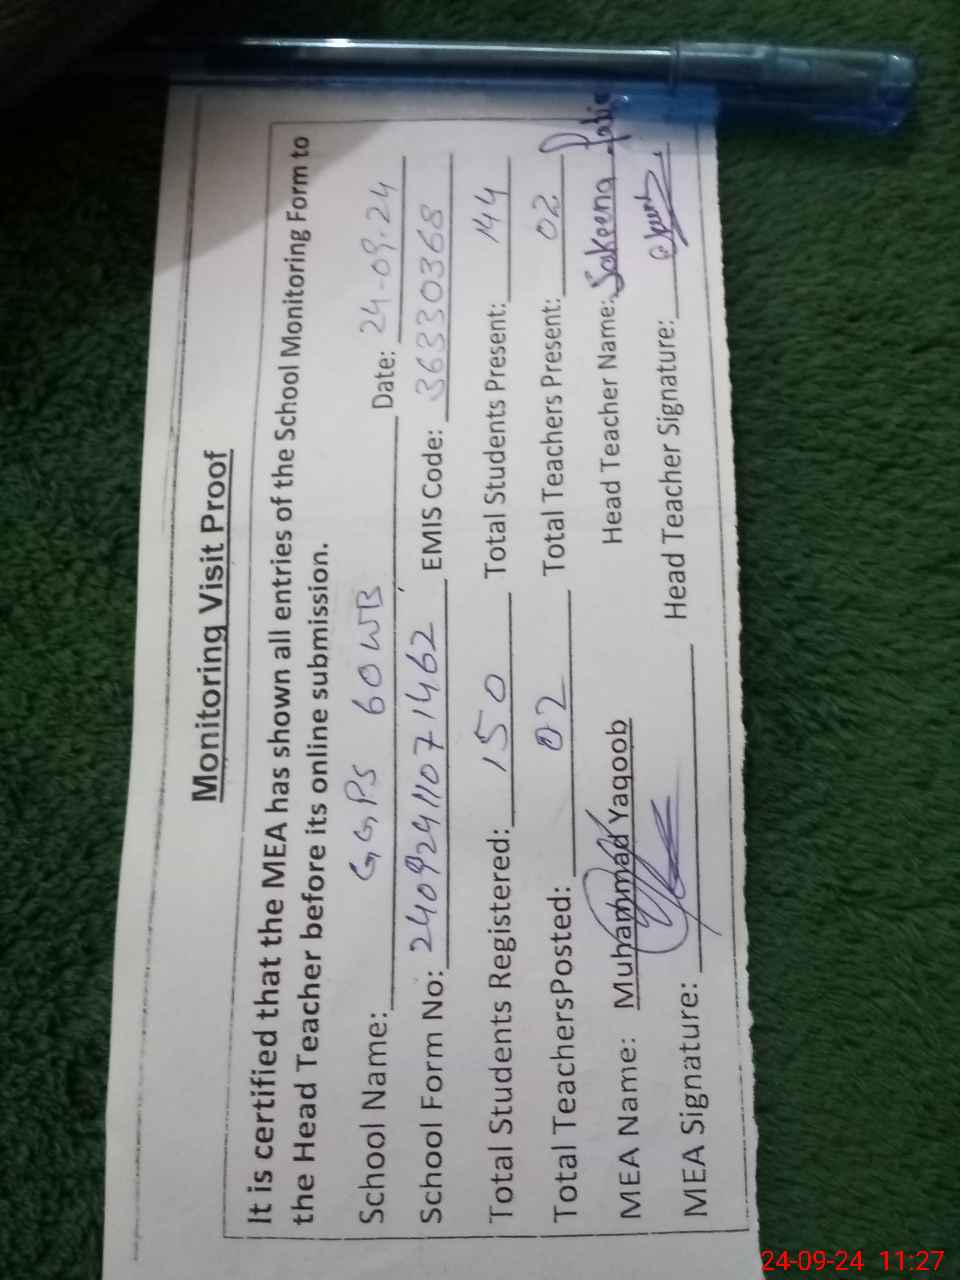 Monitoring Visit Proof
It is certified that the MEA has shown all entries of the School Monitoring Form to
the Head Teacher before its online submission.
School Name: GGPS 60 WB Date: 24-09-24
School Form No: 24092411071462 EMIS Code: 36330368
Total Students Registered: 150 Total Students Present: 144
Total TeachersPosted: 02 Total Teachers Present: 02
MEA Name: Muhammad Yaqoob Head Teacher Name: Sakeena
MEA Signature: Head Teacher Signature:
24-09-24 11:27